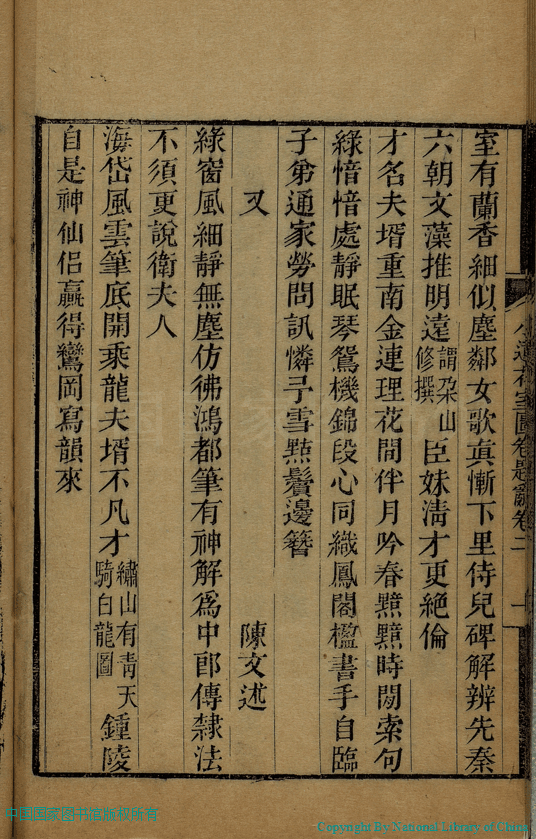 室有蘭香細似塵鄰女歌眞慚下里侍兒碑解辨先秦
六朝文藻推明遠謂朶山修撰臣妹清才更絕倫
才名夫壻重南金連理花間伴月吟春黯黯時閒索句
綠愔愔處靜眠琴鴛機錦段心同織鳳閣楹書手自臨
子弟通家勞問訊憐予雪㸃鬢邊簪
又
陳文述
綠窗風細靜無塵仿彿鴻都筆有神解爲中郎傳隸法
不須更說衛夫人
海岱風雲筆底開乘龍夫壻不凡才繡山有靑天騎白龍圖鍾陵
自是神仙侶贏得鸞岡寫韻來
卷二
一
Copyright By National Library of China